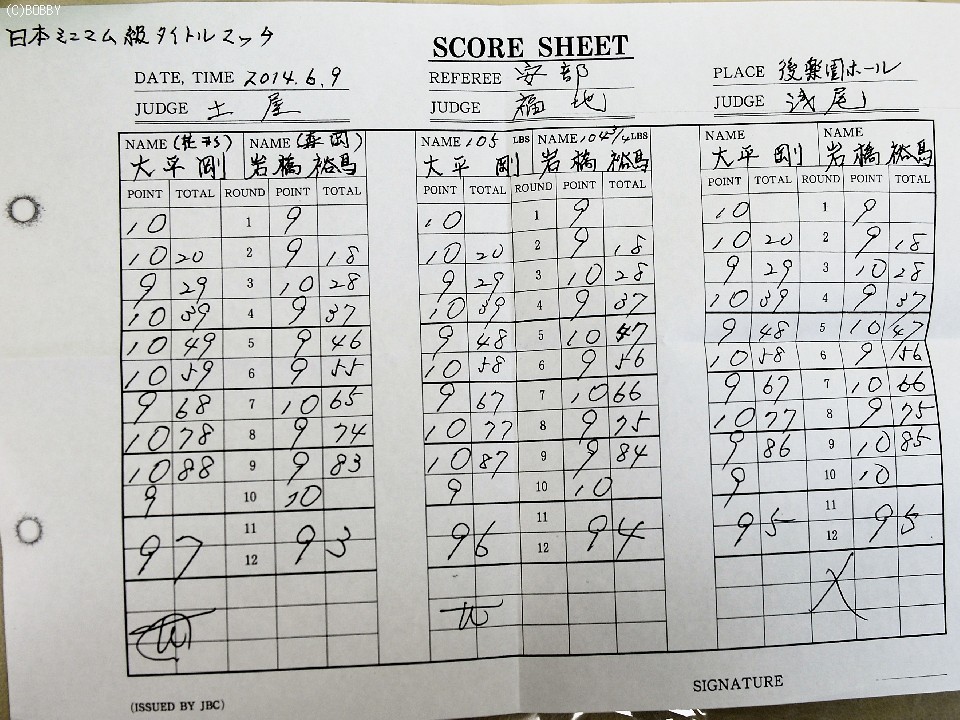 (C)BOBBY
日本ミニマム級タイトルマッチ
SCORE SHEET
DATE, TIME 2014.6.9 REFEREE 安部 PLACE 後楽園ホール
JUDGE 土屋 JUDGE 福地 JUDGE 浅尾
NAME (花形) NAME (森岡) NAME 105 LBS NAME 104 3/4 LBS NAME NAME
大平 剛 岩橋 裕馬 大平 剛 岩橋 裕馬 大平 剛 岩橋 裕馬
POINT TOTAL ROUND POINT TOTAL POINT TOTAL ROUND POINT TOTAL POINT TOTAL ROUND POINT TOTAL
10 1 9 10 1 9 10 1 9
10 20 2 9 18 10 20 2 9 18 10 20 2 9 18
9 29 3 10 28 9 29 3 10 28 9 29 3 10 28
10 39 4 9 37 10 39 4 9 37 10 39 4 9 37
10 49 5 9 46 9 48 5 10 47 9 48 5 10 47
10 59 6 9 55 10 58 6 9 56 10 58 6 9 56
9 68 7 10 65 9 67 7 10 66 9 67 7 10 66
10 78 8 9 74 10 77 8 9 75 10 77 8 9 75
10 88 9 9 83 10 87 9 9 84 9 86 9 10 85
9 10 10 9 10 10 9 10 10
11 11 11
97 93 96 94 95 95
12 12 12
W W X
(ISSUED BY JBC) SIGNATURE